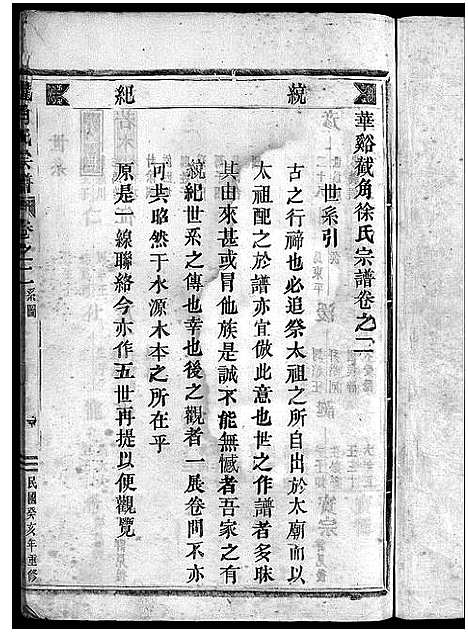 華谿截角徐氏宗譜卷之二
統
紀
世系引
古之行禘也必追祭太祖之所自出於太廟而以
太祖配之於譜亦宜倣此意也世之作譜者多昧
其由來甚或冒他族是誠不能無憾者吾家之有
統紀世系之傳也幸也後之觀者一展卷問不亦
可共曉然于水源木本之所在乎
原是一線聯絡今亦作五世再提以便觀覽
氏宗譜
卷之二
系圖
民國癸亥年重修